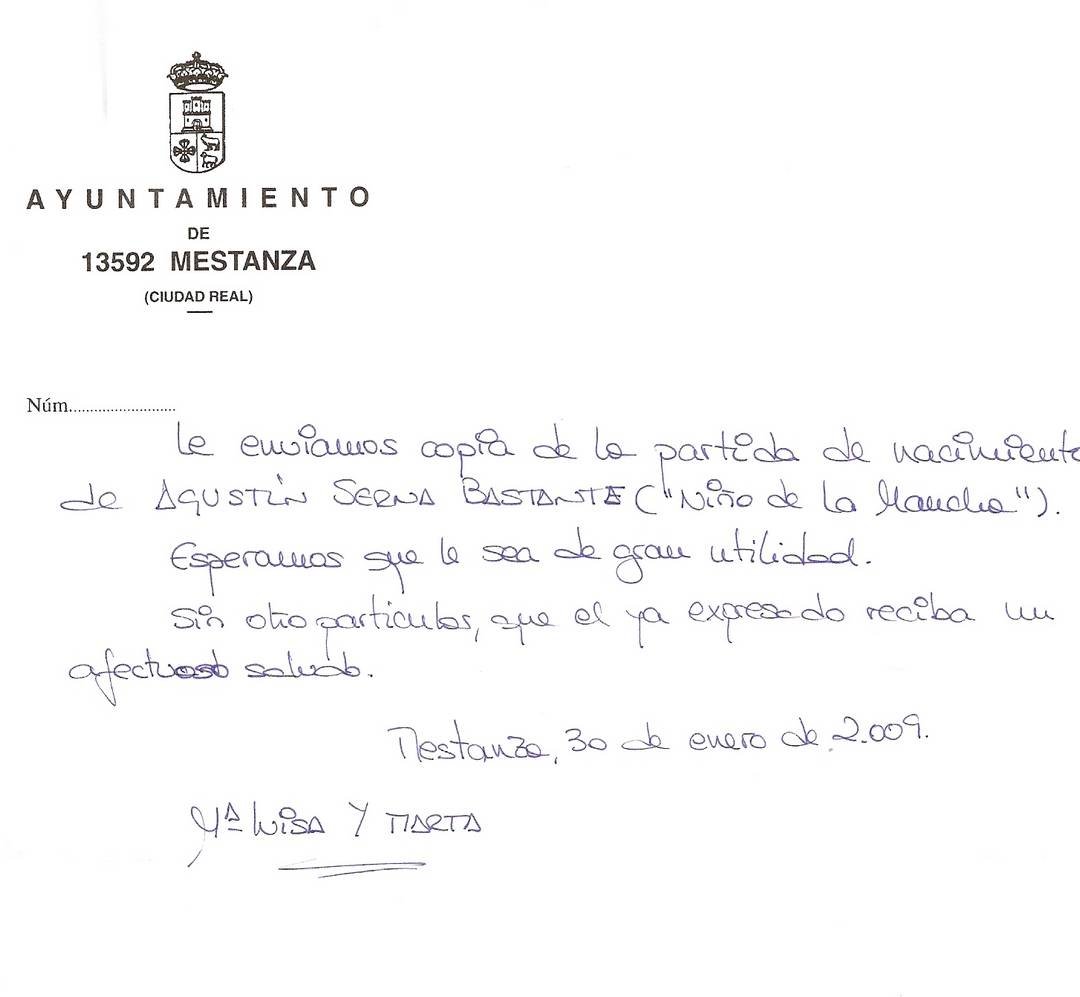 AYUNTAMIENTO
DE
13592 MESTANZA
(CIUDAD REAL)
Núm..........................
Le enviamos copia de la partida de nacimiento
de AGUSTÍN SERNA BASTANTE ("Niño de La Mancha").
Esperamos que le sea de gran utilidad.
Sin otro particular, que el ya expresado reciba un
afectuoso saludo.
Mestanza, 30 de enero de 2.009.
Mª LUISA Y MARTA